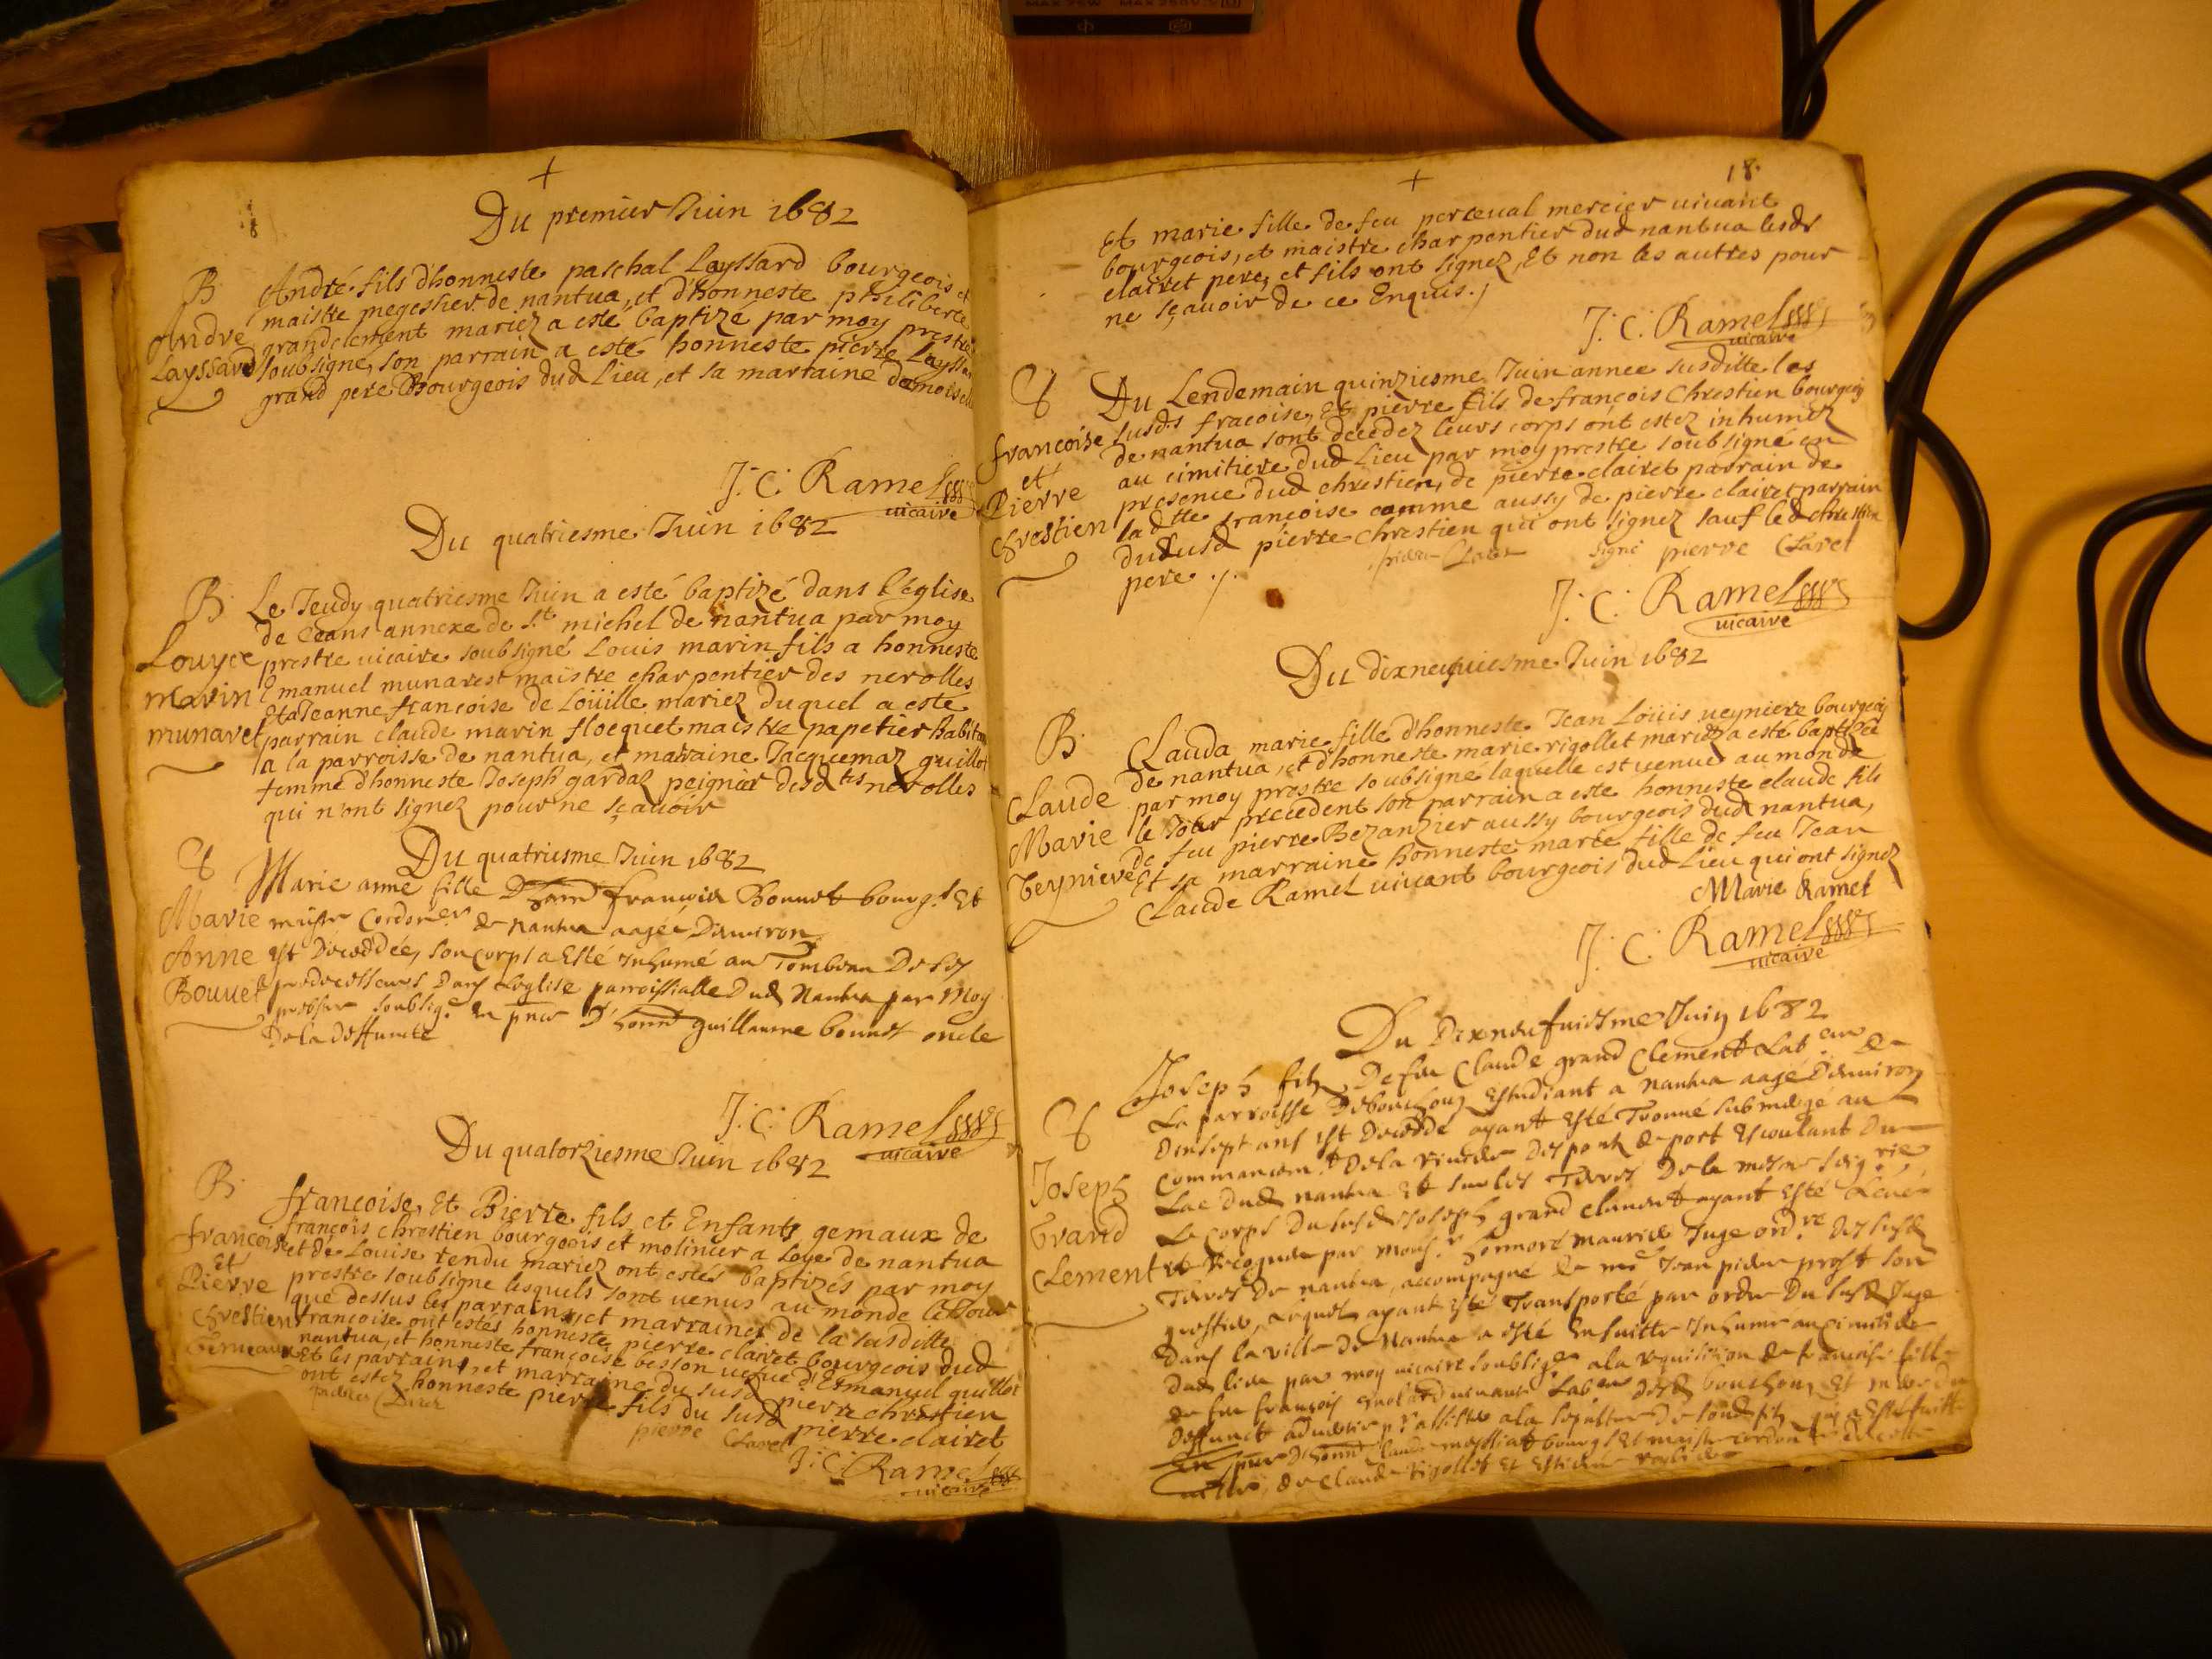 Du premier Juin 1682
B.
Andre
Layssard
André fils d'honneste paschal Layssard bourgeois et
maistre megestier de nantua, et d'honneste philiberte
grandclement mariez a esté baptizé par moy prestre
soubsigné, son parrain a esté honneste pierre Layssar
grand pere Bourgeois dud Lieu, et sa marraine demoiselle
J: C: Ramel
vicaire
Du quatriesme Juin 1682
B.
Louyce
marin
munaret
Le Jeudy quatriesme Juin a esté baptizé dans l'église
de ceans annexe de St michel de nantua par moy
prestre vicaire soubsigné Louis marin fils a honneste
Emanuel munarest maistre charpentier des nerolles
Et a Jeanne francoise de Loüille mariez duquel a este
parrain claude marin flocquet maistre papetier habitan
a la parroisse de nantua, et marraine Jacquemaz guillot
femme d'honneste Joseph gardaz peignier desdtes nerolles
qui n'ont signez pour ne sçavoir
Du quatriesme Juin 1682
Marie
Anne
Bouuet
Marie anne fille D'honn francois Bonnet bourg.s Et
Cordoner de nantua aagée D'enuiron
Est Deceddée, son corps a Esté Inhumé au Tombeau De ses
predecesseurs Dans Leglise parroissialle Dud Nantua par Moy
soubsig.e En pnce D'honn guillaume bonnet oncle
De la deffuncte
J: C: Ramel
vicaire
Du quatorziesme Juin 1682
B.
francoise
et
Pierre
Chrestien
Gemeaux
francoise, Et Pierre fils et Enfants gemaux de
françois chrestien bourgeois et molinier a Loye de nantua
et de Louise tendu mariez ont estés baptizés par moy
prestre soubsigne lesquels sont venus au monde le Jour
que dessus les parrains, et marraines de la susditte
francoise ont estés honneste pierre clairet bourgeois dud
nantua, et honneste françoise besson vefue d'Emanuel guillot
Et les parrains, et marraine du susd pierre chrestien
ont estez honneste pierre fils du susd pierre clairet
pierre Claret
J: C: Ramel
vicaire
18.
Et marie fille de feu perceual mercier viuant
bourgeois, et maistre charpentier dud nantua lesds
clairet pere, et fils ont signez, Et non les autres pour
ne sçavoir de ce Enquis./
J: C: Ramel
vicaire
francoise
et
Pierre
Chrestien
Du Lendemain quinziesme Juin annee susditte les
susds fracoise, Et pierre fils de françois Chrestien bourgeois
de nantua sont decedez leurs corps ont estez inhumez
au cimitiere dud Lieu par moy prestre soubsigné en
presence dud chrestien, de pierre clairet parrain de
ladtte francoise comme aussy de pierre clairet parrain
dudusd pierre chrestien qui ont signez sauf led chrestien
pere ./.
signé pierre Claret
J: C: Ramel
vicaire
Du dixneufuiesme Juin 1682
B.
Claude
Marie
Veyniere
Clauda marie fille d'honneste Jean Loüis veyniere bourgeois
de nantua, et d'honneste marie rigollet mariez a esté baptizée
par moy prestre soubsigné laquelle est venue au monde
le Jour precedent son parrain a este honneste claude fils
de feu pierre Bezanzier aussy bourgeois dud nantua,
Et sa marraine honneste marie fille de feu Jean
Claude Ramel viuant bourgeois dud Lieu qui ont signez
Marie Ramel
J: C: Ramel
vicaire
Du Dixneufuiesme Juin 1682
Joseph
Grand
Clement
Joseph fils De feu Claude grand Clement Lab.eur De
La parroisse Debouchoux Estudiant a nantua aagé D'enuiron
Dixsept ans Est Decedde ayant Esté Trouué submerge au
Commancem.t De la riuiere des ponts de port Escoulant Du
Lac dud nantua Et sur les Terres De la mesme seig.rie
Le corps Du susd Joseph grand clement ayant Esté Leué
et recogneu par Mons.r honnoré Mauris Juge ord.re Des susd
Terres De nantua, accompagné de me Jean pierre prost son
greffier, Lequel ayant Esté Transporté par ordre Du susd Juge
Dans la ville De Nantua a esté Ensuitte Inhumé au Cimitiere
Dud lieu par moy vicaire soubsigné a la requisition de francoise fille
de feu françois viuant Lab.eur Desd bouchoux Et mere du
Deffunct a la sepulture De sond fils
En pnce D'honn claude messiat bourgs Et maistre cordon.r
de claude rigollet Et Estienne